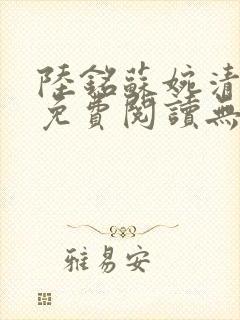 陸銘蘇婉清
免費閱讀無
雅易安